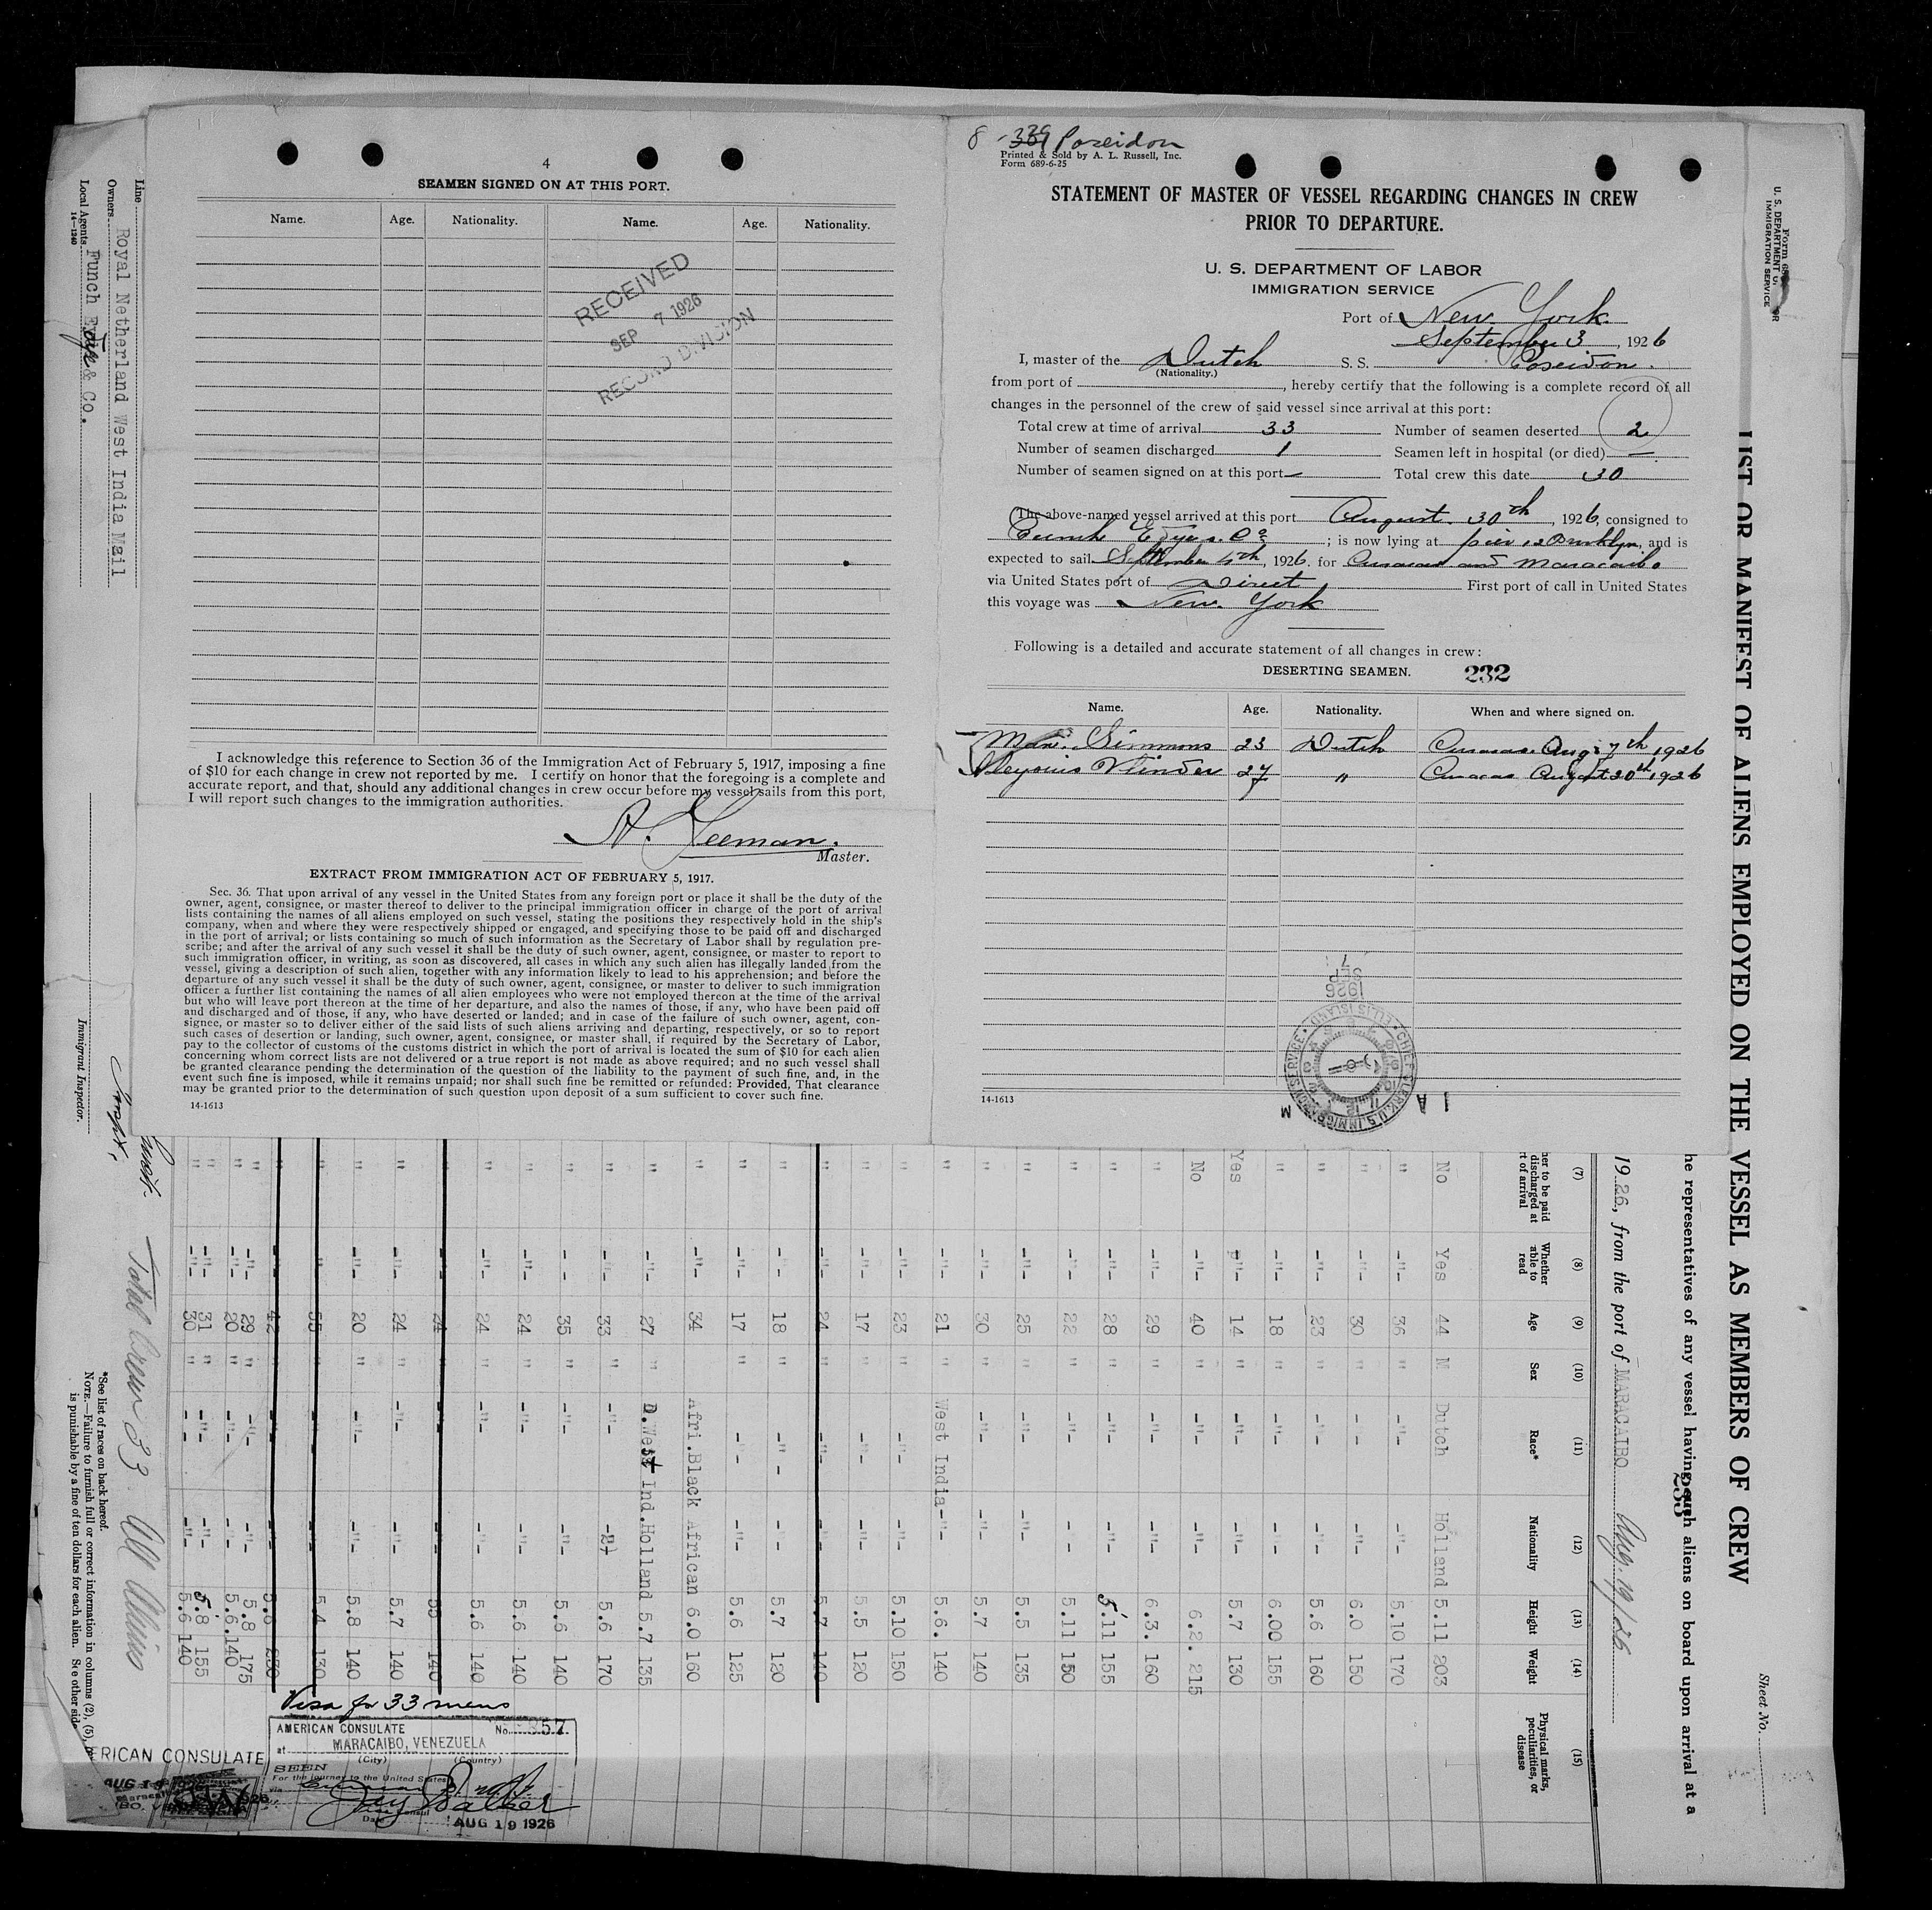 4
SEAMEN SIGNED ON AT THIS PORT.
Name. Age. Nationality. Name. Age. Nationality.
RECEIVED
SEP 7 1926
RECORD DIVISION
I acknowledge this reference to Section 36 of the Immigration Act of February 5, 1917, imposing a fine
of $10 for each change in crew not reported by me. I certify on honor that the foregoing is a complete and
accurate report, and that, should any additional changes in crew occur before my vessel sails from this port,
I will report such changes to the immigration authorities.
Master.
EXTRACT FROM IMMIGRATION ACT OF FEBRUARY 5, 1917.
Sec. 36. That upon arrival of any vessel in the United States from any foreign port or place it shall be the duty of the
owner, agent, consignee, or master thereof to deliver to the principal immigration officer in charge of the port of arrival
lists containing the names of all aliens employed on such vessel, stating the positions they respectively hold in the ship's
company, when and where they were respectively shipped or engaged, and specifying those to be paid off and discharged
in the port of arrival; or lists containing so much of such information as the Secretary of Labor shall by regulation pre-
scribe; and after the arrival of any such vessel it shall be the duty of such owner, agent, consignee, or master to report to
such immigration officer, in writing, as soon as discovered, all cases in which any such alien has illegally landed from the
vessel, giving a description of such alien, together with any information likely to lead to his apprehension; and before the
departure of any such vessel it shall be the duty of such owner, agent, consignee, or master to deliver to such immigration
officer a further list containing the names of all alien employees who were not employed thereon at the time of the arrival
but who will leave port thereon at the time of her departure, and also the names of those, if any, who have been paid off
and discharged and of those, if any, who have deserted or landed; and in case of the failure of such owner, agent, con-
signee, or master so to deliver either of the said lists of such aliens arriving and departing, respectively, or so to report
such cases of desertion or landing, such owner, agent, consignee, or master shall, if required by the Secretary of Labor,
pay to the collector of customs of the customs district in which the port of arrival is located the sum of $10 for each alien
concerning whom correct lists are not delivered or a true report is not made as above required; and no such vessel shall
be granted clearance pending the determination of the question of the liability to the payment of such fine, and, in the
event such fine is imposed, while it remains unpaid; nor shall such fine be remitted or refunded: Provided, That clearance
may be granted prior to the determination of such question upon deposit of a sum sufficient to cover such fine.
14-1613
8 - 339 Poseidon
Printed & Sold by A. L. Russell, Inc.
Form 689-6-25
STATEMENT OF MASTER OF VESSEL REGARDING CHANGES IN CREW
PRIOR TO DEPARTURE.
U. S. DEPARTMENT OF LABOR
IMMIGRATION SERVICE
Port of New York
September 3, 1926
I, master of the Dutch S. S. Poseidon.
(Nationality.)
from port of , hereby certify that the following is a complete record of all
changes in the personnel of the crew of said vessel since arrival at this port:
Total crew at time of arrival 33 Number of seamen deserted 2
Number of seamen discharged 1 Seamen left in hospital (or died) —
Number of seamen signed on at this port — Total crew this date 30
The above-named vessel arrived at this port August 30th, 1926, consigned to
; is now lying at pier 12 Brooklyn, and is
expected to sail September 4th, 1926, for Curacao and Maracaibo
via United States port of Direct First port of call in United States
this voyage was New York
Following is a detailed and accurate statement of all changes in crew:
DESERTING SEAMEN. 232
Name. Age. Nationality. When and where signed on.
Simmons 23 Dutch Curacao Aug 7th 1926
27 " Curacao August 20th 1926
1926
SEP
7
CHIEF CLERK, U.S. IMMIGRATION SERVICE
ELLIS ISLAND
14-1613
Form 68
U. S. DEPARTMENT OF
IMMIGRATION SERVICE
LIST OR MANIFEST OF ALIENS EMPLOYED ON THE VESSEL AS MEMBERS OF CREW
Sheet No.
he representatives of any vessel having such aliens on board upon arrival at a
1926, from the port of MARACAIBO Aug. 19/26
(7) (8) (9) (10) (11) (12) (13) (14) (15)
her to be paid discharged at rt of arrival
Whether able to read
Age
Sex
Race*
Nationality
Height
Weight
Physical marks, peculiarities, or disease
No Yes 44 M Dutch Holland 5.11 203
" -"- 36 " -"- -"- 5.10 170
" -"- 30 " - - -"- 6.0 150
" -"- 23 " -"- -"- 5.6 160
" -"- 18 " -"- -"- 6.00 155
Yes -"- 14 " -"- -"- 5.7 130
No -"- 40 " -"- -"- 6.2. 215
" -"- 29 " -"- -"- 6.3. 160
" -"- 28 " -"- -"- 5.11 155
" -"- 22 " -"- - - 5.11 150
" -"- 25 " -"- -"- 5.5 135
" -"- 30 " -"- -"- 5.7 140
" -"- 21 " West India -"- 5.6. 140
" -"- 23 " -"- -"- 5.10 150
" -"- 17 " -"- -"- 5.5 120
" -"- 24 " -"- -"- 5.7 140
" - - 18 " -"- - - 5.7 120
" -"- 17 " -"- -"- 5.6 125
" -"- 34 Afri.Black African 6.0 160
" -"- 27 " D.West Ind. Holland 5.7 135
" -"- 33 " -"- 5.6 170
" - - 35 " -"- -"- 5.6 140
" -"- 24 " -"- -"- 5.6 140
" -"- 24 " -"- -"- 5.6 140
24 140
" -"- 24 " -"- -"- 5.7 140
" -"- 20 " -"- -"- 5.8 140
55 5.4 130
42 5.6 230
" -"- 29 " -"- -"- 5.8 175
" -"- 20 " -"- - - 5.6. 140
" -"- 31 " -"- -"- 5.8 155
" -"- 30 " - - -"- 5.6 140
Total Crew 33 All Aliens
*See list of races on back hereof.
NOTE.—Failure to furnish full or correct information in columns (2), (5),
is punishable by a fine of ten dollars for each alien. See other side
Line
Owners Royal Netherland West India Mail
Local Agents Funch Edye & Co.
14-1240
Immigrant Inspector.
Visa for 33 mens
AMERICAN CONSULATE No. 857
at MARACAIBO, VENEZUELA
(City) (Country)
SEEN
For the journey to the United States
via
Jay Walker
Vice Consul
Date AUG 19 1926
ERICAN CONSULATE
AUG 19 1926